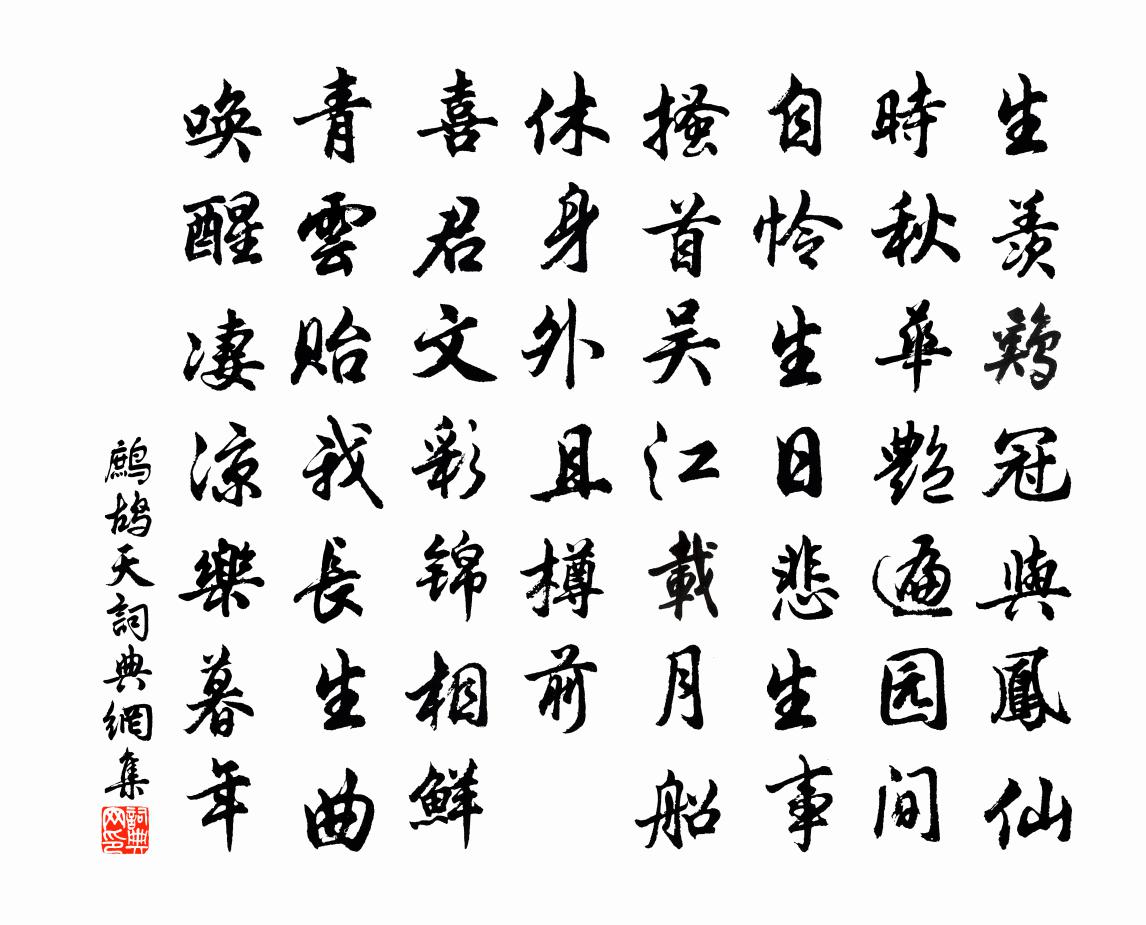 生羨鷄冠與鳳仙
時秋華艷遍园间
自怜生日悲生事
搔首吴江載月船
休身外且樽前
喜君文彩锦相鮮
青雲貽我長生曲
喚醒凄涼樂暮年
鷓鴣天詞典網集
詞典网印